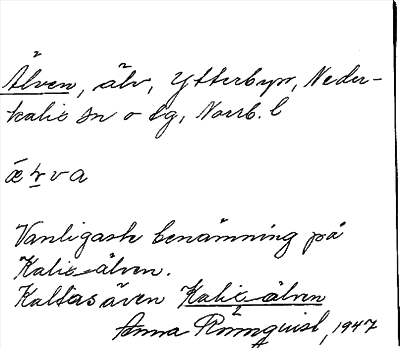 Älven, älv, Ytterbyn, Neder-
kalix sn o tg, Norrb. l
Vanligaste benämning på
Kalix-älven.
Kallas även Kalix-älven
Anna Rönnquist, 1947